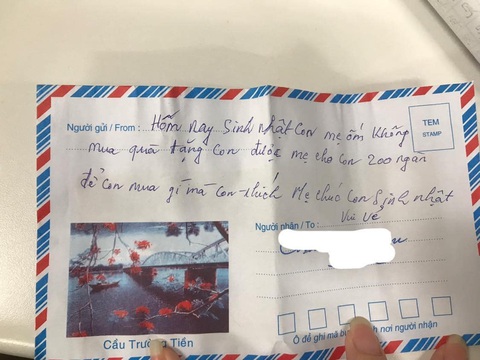 Người gửi / From : Hôm nay Sinh nhật Con mẹ ốm không
TEM
STAMP
mua quà tặng Con được mẹ cho Con 200 ngàn
để Con mua gì mà Con thích Mẹ chúc Con Sinh nhật
Vui Vẻ
Người nhận / To :
Ô để ghi mã nơi người nhận
Cầu Trường Tiền